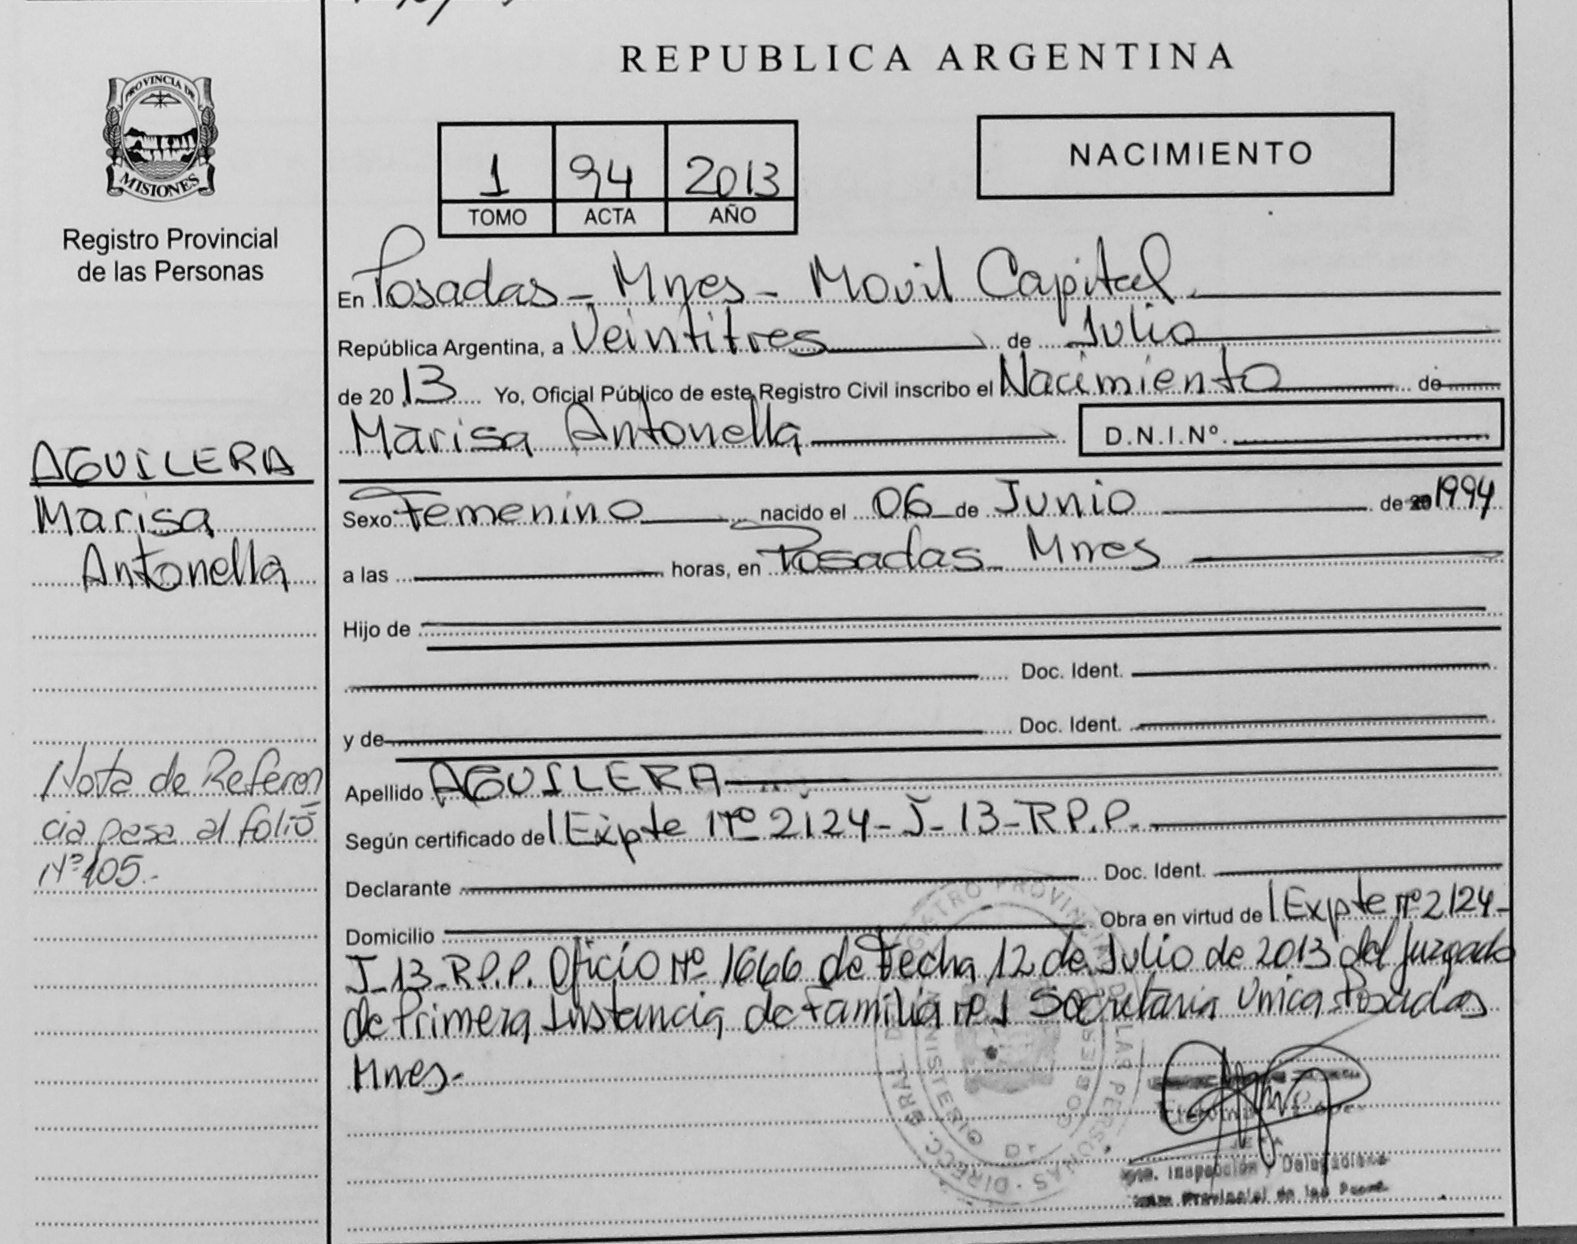 REPUBLICA ARGENTINA
PROVINCIA DE
MISIONES
Registro Provincial
de las Personas
1 94 2013
TOMO ACTA AÑO
NACIMIENTO
En Posadas - Mnes - Movil Capital
República Argentina, a Veintitres de Julio
de 20 13 Yo, Oficial Público de este Registro Civil inscribo el Nacimiento de
Marisa Antonella D.N.I.Nº.
AGUILERA
Marisa
Antonella
Sexo Femenino nacido el 06 de Junio de 1994
a las horas, en Posadas Mnes
Hijo de
Doc. Ident.
y de Doc. Ident.
Nota de Referen
cia pasa al folio
Nº 105.-
Apellido AGUILERA
Según certificado del Expte Nº 2124 - J - 13 - R.P.P.
Declarante Doc. Ident.
Domicilio Obra en virtud de Expte Nº 2124-
J-13-R.P.P. Oficio Nº 1666 de Fecha 12 de Julio de 2013 del Juzgado
de Primera Instancia de Familia Nº 1 Secretaria Unica Posadas
Mnes-
Inspección y Delegaciones
Provincial de las Pers.